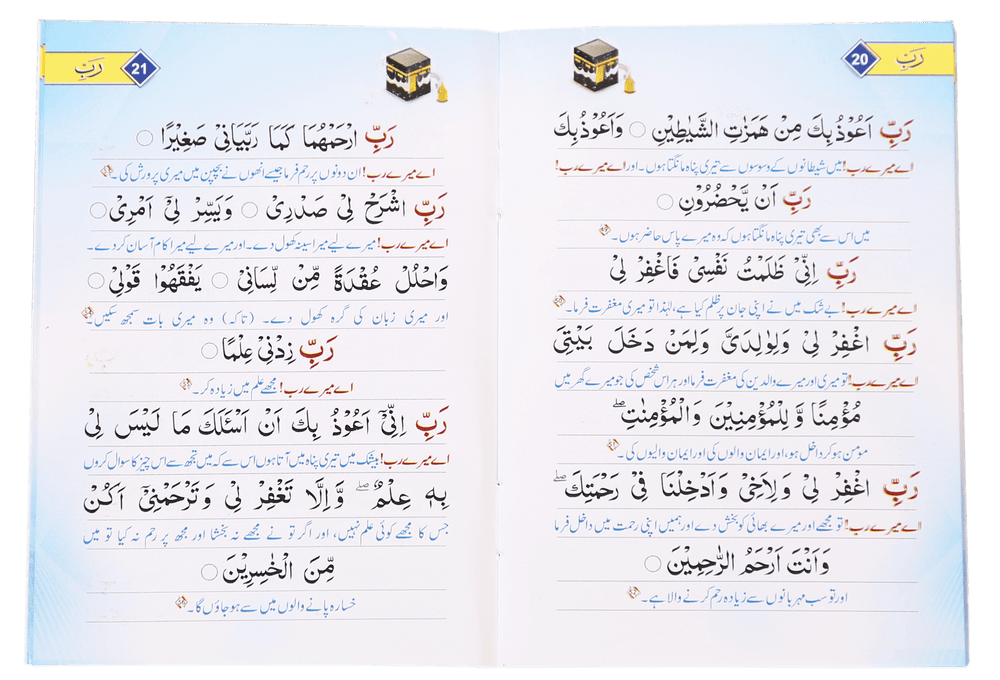 رَبِّ
20
رَبِّ اَعُوْذُ بِكَ مِنْ هَمَزٰتِ الشَّيٰطِيْنِ ○ وَاَعُوْذُ بِكَ
اے میرے رب! میں شیطانوں کے وسوسوں سے تیری پناہ مانگتا ہوں۔ اور اے میرے رب!
رَبِّ اَنْ يَّحْضُرُوْنِ ○
میں اس سے بھی تیری پناہ مانگتا ہوں کہ وہ میرے پاس حاضر ہوں۔
رَبِّ اِنِّىْ ظَلَمْتُ نَفْسِىْ فَاغْفِرْ لِىْ
اے میرے رب! بے شک میں نے اپنی جان پر ظلم کیا ہے، لہٰذا تو میری مغفرت فرما۔
رَبِّ اغْفِرْ لِىْ وَلِوٰلِدَىَّ وَلِمَنْ دَخَلَ بَيْتِىَ
اے میرے رب! تو میری اور میرے والدین کی مغفرت فرما اور ہر اس شخص کی جو میرے گھر میں
مُؤْمِنًا وَّ لِلْمُؤْمِنِيْنَ وَالْمُؤْمِنٰتِ ۖ
مؤمن ہو کر داخل ہو، اور ایمان والوں کی اور ایمان والیوں کی۔
رَبِّ اغْفِرْ لِىْ وَلِاَخِىْ وَاَدْخِلْنَا فِىْ رَحْمَتِكَ ۖ
اے میرے رب! تو مجھے اور میرے بھائی کو بخش دے اور ہمیں اپنی رحمت میں داخل فرما
وَاَنْتَ اَرْحَمُ الرّٰحِمِيْنَ ○
اور تو سب مہربانوں سے زیادہ رحم کرنے والا ہے۔
21
رَبِّ
رَبِّ ارْحَمْهُمَا كَمَا رَبَّيَانِىْ صَغِيْرًا ○
اے میرے رب! ان دونوں پر رحم فرما جیسے انھوں نے بچپن میں میری پرورش کی۔
رَبِّ اشْرَحْ لِىْ صَدْرِىْ ○ وَيَسِّرْ لِىْٓ اَمْرِىْ ○
اے میرے رب! میرے لیے میرا سینہ کھول دے۔ اور میرے لیے میرا کام آسان کر دے۔
وَاحْلُلْ عُقْدَةً مِّنْ لِّسَانِىْ ○ يَفْقَهُوْا قَوْلِىْ ○
اور میری زبان کی گرہ کھول دے۔ (تاکہ) وہ میری بات سمجھ سکیں۔
رَبِّ زِدْنِىْ عِلْمًا ○
اے میرے رب! مجھے علم میں زیادہ کر۔
رَبِّ اِنِّىْٓ اَعُوْذُ بِكَ اَنْ اَسْئَلَكَ مَا لَيْسَ لِىْ
اے میرے رب! بیشک میں تیری پناہ میں آتا ہوں اس سے کہ میں تجھ سے اس چیز کا سوال کروں
بِهٖ عِلْمٌ ۖ وَّاِلَّا تَغْفِرْ لِىْ وَتَرْحَمْنِىْٓ اَكُنْ
جس کا مجھے کوئی علم نہیں، اور اگر تو نے مجھے نہ بخشا اور مجھ پر رحم نہ کیا تو میں
مِّنَ الْخٰسِرِيْنَ ○
خسارہ پانے والوں میں سے ہو جاؤں گا۔